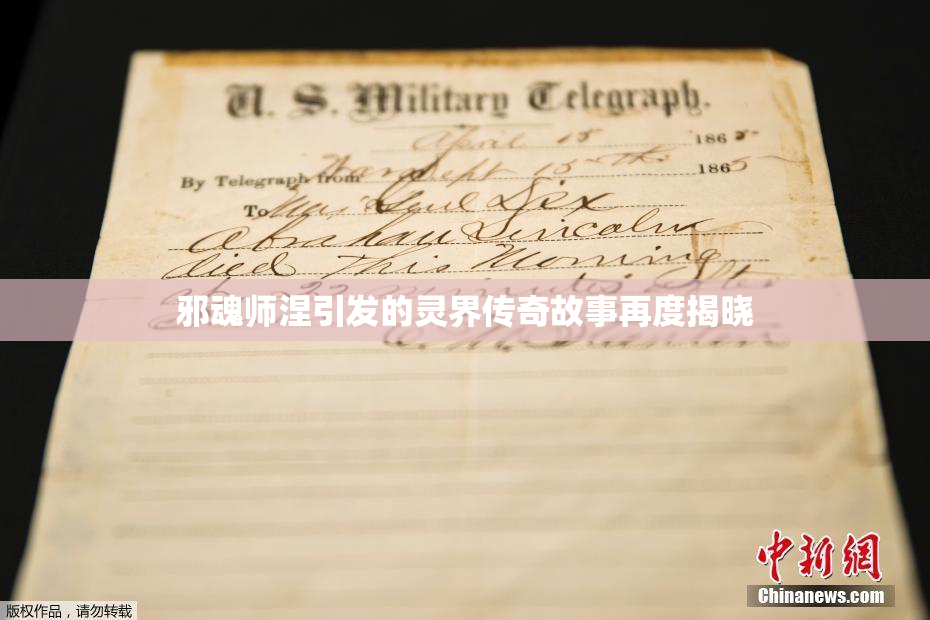 U. S. Military Telegraph.
April 15 1865
By Telegraph from War Dept 15th 1865
To Maj Genl Dix
Abraham Lincoln
died This Morning
22 minutes after
邪魂师涅引发的灵界传奇故事再度揭晓
Stanton
中新網
Chinanews.com
版权作品，请勿转载